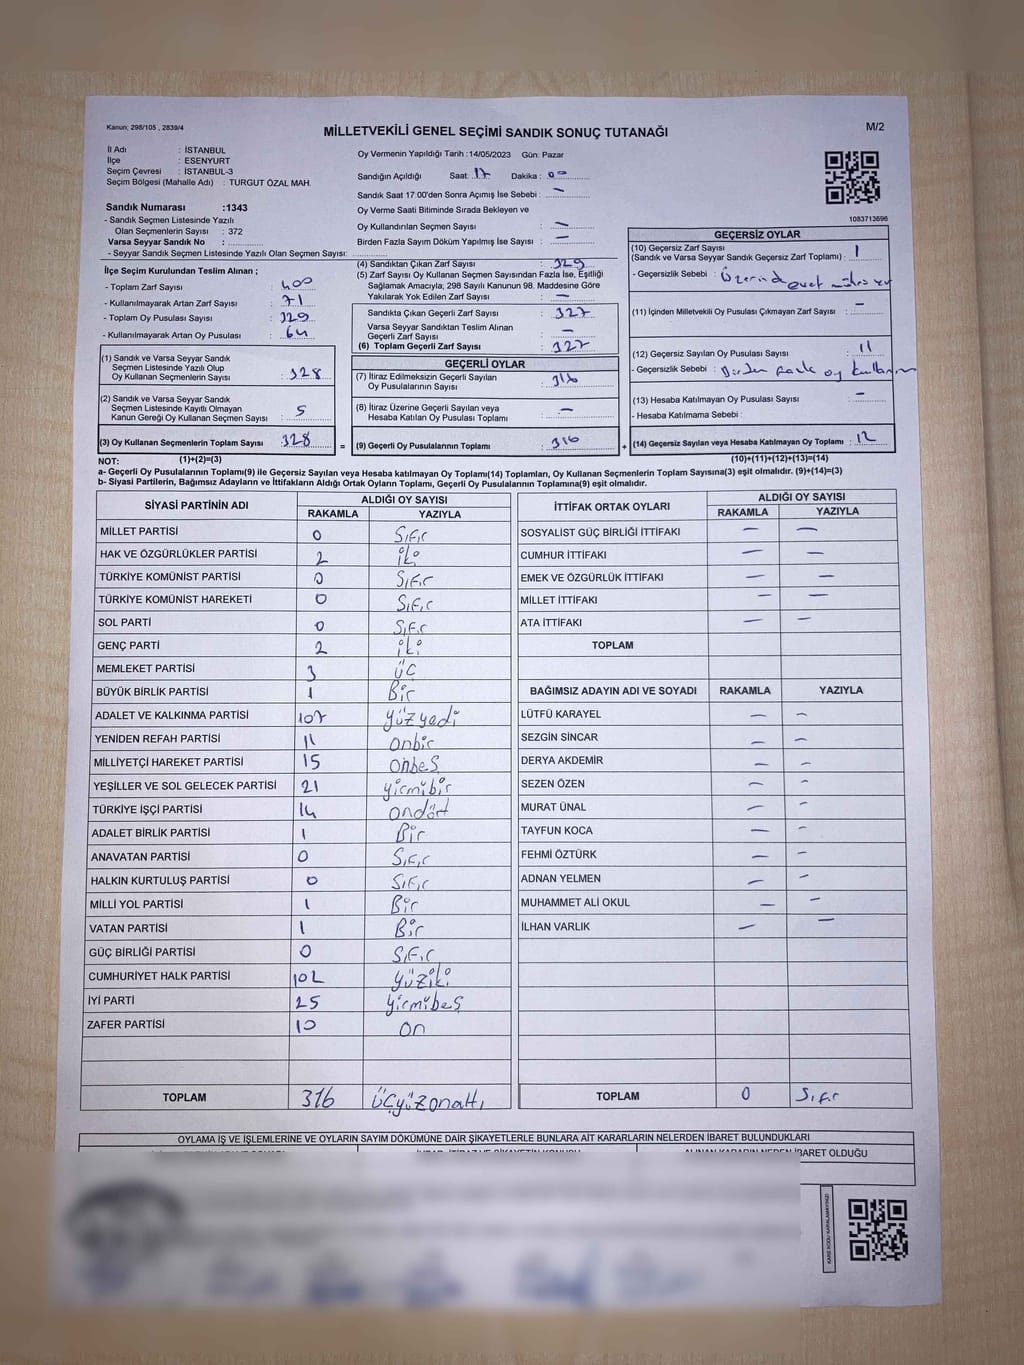 Kanun; 298/105 , 2839/4
MİLLETVEKİLİ GENEL SEÇİMİ SANDIK SONUÇ TUTANAĞI
M/2
İl Adı : İSTANBUL
İlçe : ESENYURT
Seçim Çevresi : İSTANBUL-3
Seçim Bölgesi (Mahalle Adı) : TURGUT ÖZAL MAH.
Sandık Numarası :1343
- Sandık Seçmen Listesinde Yazılı
Olan Seçmenlerin Sayısı : 372
Varsa Seyyar Sandık No :
- Seyyar Sandık Seçmen Listesinde Yazılı Olan Seçmen Sayısı:
Oy Vermenin Yapıldığı Tarih :14/05/2023 Gün: Pazar
Sandığın Açıldığı Saat: 17 Dakika : 00
Sandık Saat 17:00'den Sonra Açımış İse Sebebi : —
Oy Verme Saati Bitiminde Sırada Bekleyen ve
Oy Kullandırılan Seçmen Sayısı : —
Birden Fazla Sayım Döküm Yapılmış İse Sayısı : —
1083713696
İlçe Seçim Kurulundan Teslim Alınan ;
- Toplam Zarf Sayısı : 400
- Kullanılmayarak Artan Zarf Sayısı : 71
- Toplam Oy Pusulası Sayısı : 329
- Kullanılmayarak Artan Oy Pusulası : 64
(1) Sandık ve Varsa Seyyar Sandık
Seçmen Listesinde Yazılı Olup
Oy Kullanan Seçmenlerin Sayısı : 328
(2) Sandık ve Varsa Seyyar Sandık
Seçmen Listesinde Kayıtlı Olmayan
Kanun Gereği Oy Kullanan Seçmen Sayısı : 5
(3) Oy Kullanan Seçmenlerin Toplam Sayısı : 328
(1)+(2)=(3)
(4) Sandıktan Çıkan Zarf Sayısı : 329
(5) Zarf Sayısı Oy Kullanan Seçmen Sayısından Fazla İse, Eşitliği
Sağlamak Amacıyla; 298 Sayılı Kanunun 98. Maddesine Göre
Yakılarak Yok Edilen Zarf Sayısı : —
Sandıkta Çıkan Geçerli Zarf Sayısı : 327
Varsa Seyyar Sandıktan Teslim Alınan
Geçerli Zarf Sayısı : —
(6) Toplam Geçerli Zarf Sayısı : 327
GEÇERLİ OYLAR
(7) İtiraz Edilmeksizin Geçerli Sayılan
Oy Pusulalarının Sayısı : 316
(8) İtiraz Üzerine Geçerli Sayılan veya
Hesaba Katılan Oy Pusulası Toplamı : —
= (9) Geçerli Oy Pusulalarının Toplamı : 316 +
GEÇERSİZ OYLAR
(10) Geçersiz Zarf Sayısı
(Sandık ve Varsa Seyyar Sandık Geçersiz Zarf Toplamı) : 1
- Geçersizlik Sebebi : Üzerinde evet mührü var
(11) İçinden Milletvekili Oy Pusulası Çıkmayan Zarf Sayısı : —
(12) Geçersiz Sayılan Oy Pusulası Sayısı : 11
- Geçersizlik Sebebi : Birden fazla oy kullanım
(13) Hesaba Katılmayan Oy Pusulası Sayısı : —
- Hesaba Katılmama Sebebi :
(14) Geçersiz Sayılan veya Hesaba Katılmayan Oy Toplamı : 12
(10)+(11)+(12)+(13)=(14)
NOT:
a- Geçerli Oy Pusulalarının Toplamı(9) ile Geçersiz Sayılan veya Hesaba katılmayan Oy Toplamı(14) Toplamları, Oy Kullanan Seçmenlerin Toplam Sayısına(3) eşit olmalıdır. (9)+(14)=(3)
b- Siyasi Partilerin, Bağımsız Adayların ve İttifakların Aldığı Ortak Oyların Toplamı, Geçerli Oy Pusulalarının Toplamına(9) eşit olmalıdır.
SİYASİ PARTİNİN ADI ALDIĞI OY SAYISI
RAKAMLA YAZIYLA
MİLLET PARTİSİ 0 Sıfır
HAK VE ÖZGÜRLÜKLER PARTİSİ 2 iki
TÜRKİYE KOMÜNİST PARTİSİ 0 Sıfır
TÜRKİYE KOMÜNİST HAREKETİ 0 Sıfır
SOL PARTİ 0 Sıfır
GENÇ PARTİ 2 iki
MEMLEKET PARTİSİ 3 üç
BÜYÜK BİRLİK PARTİSİ 1 Bir
ADALET VE KALKINMA PARTİSİ 107 yüzyedi
YENİDEN REFAH PARTİSİ 11 onbir
MİLLİYETÇİ HAREKET PARTİSİ 15 onbeş
YEŞİLLER VE SOL GELECEK PARTİSİ 21 yirmibir
TÜRKİYE İŞÇİ PARTİSİ 14 ondört
ADALET BİRLİK PARTİSİ 1 Bir
ANAVATAN PARTİSİ 0 Sıfır
HALKIN KURTULUŞ PARTİSİ 0 Sıfır
MİLLİ YOL PARTİSİ 1 Bir
VATAN PARTİSİ 1 Bir
GÜÇ BİRLİĞİ PARTİSİ 0 Sıfır
CUMHURİYET HALK PARTİSİ 102 yüziki
İYİ PARTİ 25 yirmibeş
ZAFER PARTİSİ 10 on
TOPLAM 316 üçyüzonaltı
İTTİFAK ORTAK OYLARI ALDIĞI OY SAYISI
RAKAMLA YAZIYLA
SOSYALİST GÜÇ BİRLİĞİ İTTİFAKI — —
CUMHUR İTTİFAKI — —
EMEK VE ÖZGÜRLÜK İTTİFAKI — —
MİLLET İTTİFAKI — —
ATA İTTİFAKI — —
TOPLAM
BAĞIMSIZ ADAYIN ADI VE SOYADI RAKAMLA YAZIYLA
LÜTFÜ KARAYEL — —
SEZGİN SİNCAR — —
DERYA AKDEMİR — —
SEZEN ÖZEN — —
MURAT ÜNAL — —
TAYFUN KOCA — —
FEHMİ ÖZTÜRK — —
ADNAN YELMEN — —
MUHAMMET ALİ OKUL — —
İLHAN VARLIK — —
TOPLAM 0 Sıfır
OYLAMA İŞ VE İŞLEMLERİNE VE OYLARIN SAYIM DÖKÜMÜNE DAİR ŞİKAYETLERLE BUNLARA AİT KARARLARIN NELERDEN İBARET BULUNDUKLARI
ALINAN KARARIN NEDEN İBARET OLDUĞU